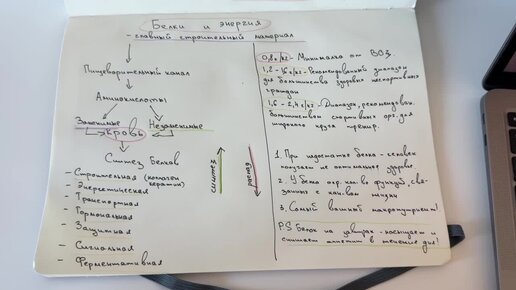 Белки и энергия
- главный строительный материал
Пищеварительный канал
Аминокислоты
Заменимые Незаменимые
Кровь
Синтез Белков
- Строительная (колаген кератин)
- Энергетическая
- Транспортная
- Гормональная
- Защитная
- Сигнальная
- Ферментативная
синтез
распад
0,8 г/кг - Минималка от ВОЗ
1,2 - 1,6 г/кг - Рекомендованный диапазон
для большинства здоровых неспортивных
граждан
1,6 - 2,4 г/кг - Диапазон, рекомендован.
большинством спортивных орг. для
широкого круга тренир.
1. При недостатке белка - человек
получает не оптимальное здоровье
2. У белка огр. кол-во функций, свя-
занных с кач-вом жизни
3. Самый важный макронутриент!
P.S Белок на завтрак - насыщает и
снижает аппетит в течение дня!